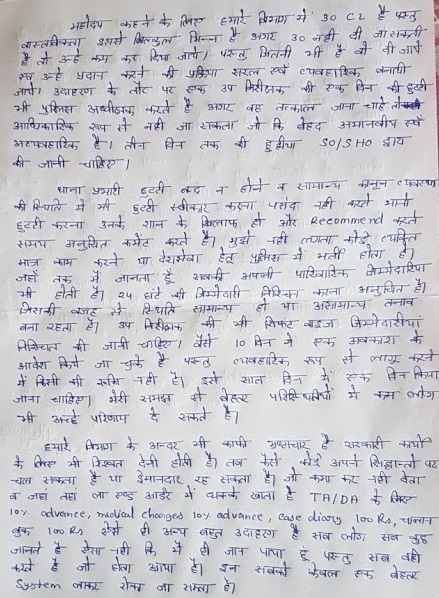 महोदय कहने के लिए हमारे विभाग में 30 CL है परन्तु
वास्तविकता इससे बिल्कुल भिन्न है अगर 30 नही दी जा सकती
है तो उन्हे कम कर दिया जाये। परन्तु जितनी भी है वो दी जाये
एवं उन्हे प्रदान करने की प्रक्रिया सरल एवं व्यवहारिक बनायी
जाये। उदाहरण के तौर पर एक उप निरीक्षक की एक दिन की छुट्टी
भी पुलिस अधीक्षक करते है अगर वह तत्काल जाना चाहे तो
आधिकारिक रूप से नही जा सकता जो कि बेहद अमानवीय एवं
अव्यवहारिक है। तीन दिन तक की छुट्टीया SO/SHO द्वारा
की जानी चाहिए।
थाना प्रभारी छुट्टी बन्द न होने व सामान्य कानून व्यवस्था
की स्थिति में भी छुट्टी स्वीकार करना पसंद नही करते मानो
छुट्टी करना उनके शान के खिलाफ हो और Recommend करते
समय अनुचित कमेंट करते है। मुझे नही लगता कोई व्यक्ति
मात्र काम करने या देशसेवा हेतु पुलिस में भर्ती होता है।
जहाँ तक मैं जानता हूँ सबकी अपनी पारिवारिक जिम्मेदारियां
भी होती है। 24 घंटे की जिम्मेदारी निश्चित करना अनुचित है।
जिसकी वजह से स्थिति सामान्य हो या असामान्य तनाव
बना रहता है। उप निरीक्षक की भी शिफ्ट वाइज जिम्मेदारीयां
निश्चित की जानी चाहिए। वैसे 10 दिन में एक अवकाश के
आदेश किये जा चुके है परन्तु व्यवहारिक रूप से लागू करने
में किसी की रूचि नही है। इसे सात दिन में एक दिन किया
जाना चाहिए। मेरी समझ से बेहतर परिस्थितियों में कम लोग
भी अच्छे परिणाम दे सकते है।
हमारे विभाग के अन्दर भी काफी भ्रष्टाचार है सरकारी कामों
के लिए भी रिश्वत देनी होती है। तब कैसे कोई अपने सिद्धान्तों पर
चल सकता है या ईमानदार रह सकता है। जो कमा कर नही देता
व जहां तहां ला एण्ड आर्डर में धक्के खाता है TA/DA के लिए
10% advance, medical charges 10% advance, case diary 100 Rs, चालान
बुक 100 Rs ऐसे ही अन्य बहुत उदाहरण है सब लोग सब कुछ
जानते है ऐसा नही कि मैं ही जान पाया हूं परन्तु सब वही
करते है जो होता आया है। इन सबको केवल एक बेहतर
System लाकर रोका जा सकता है।